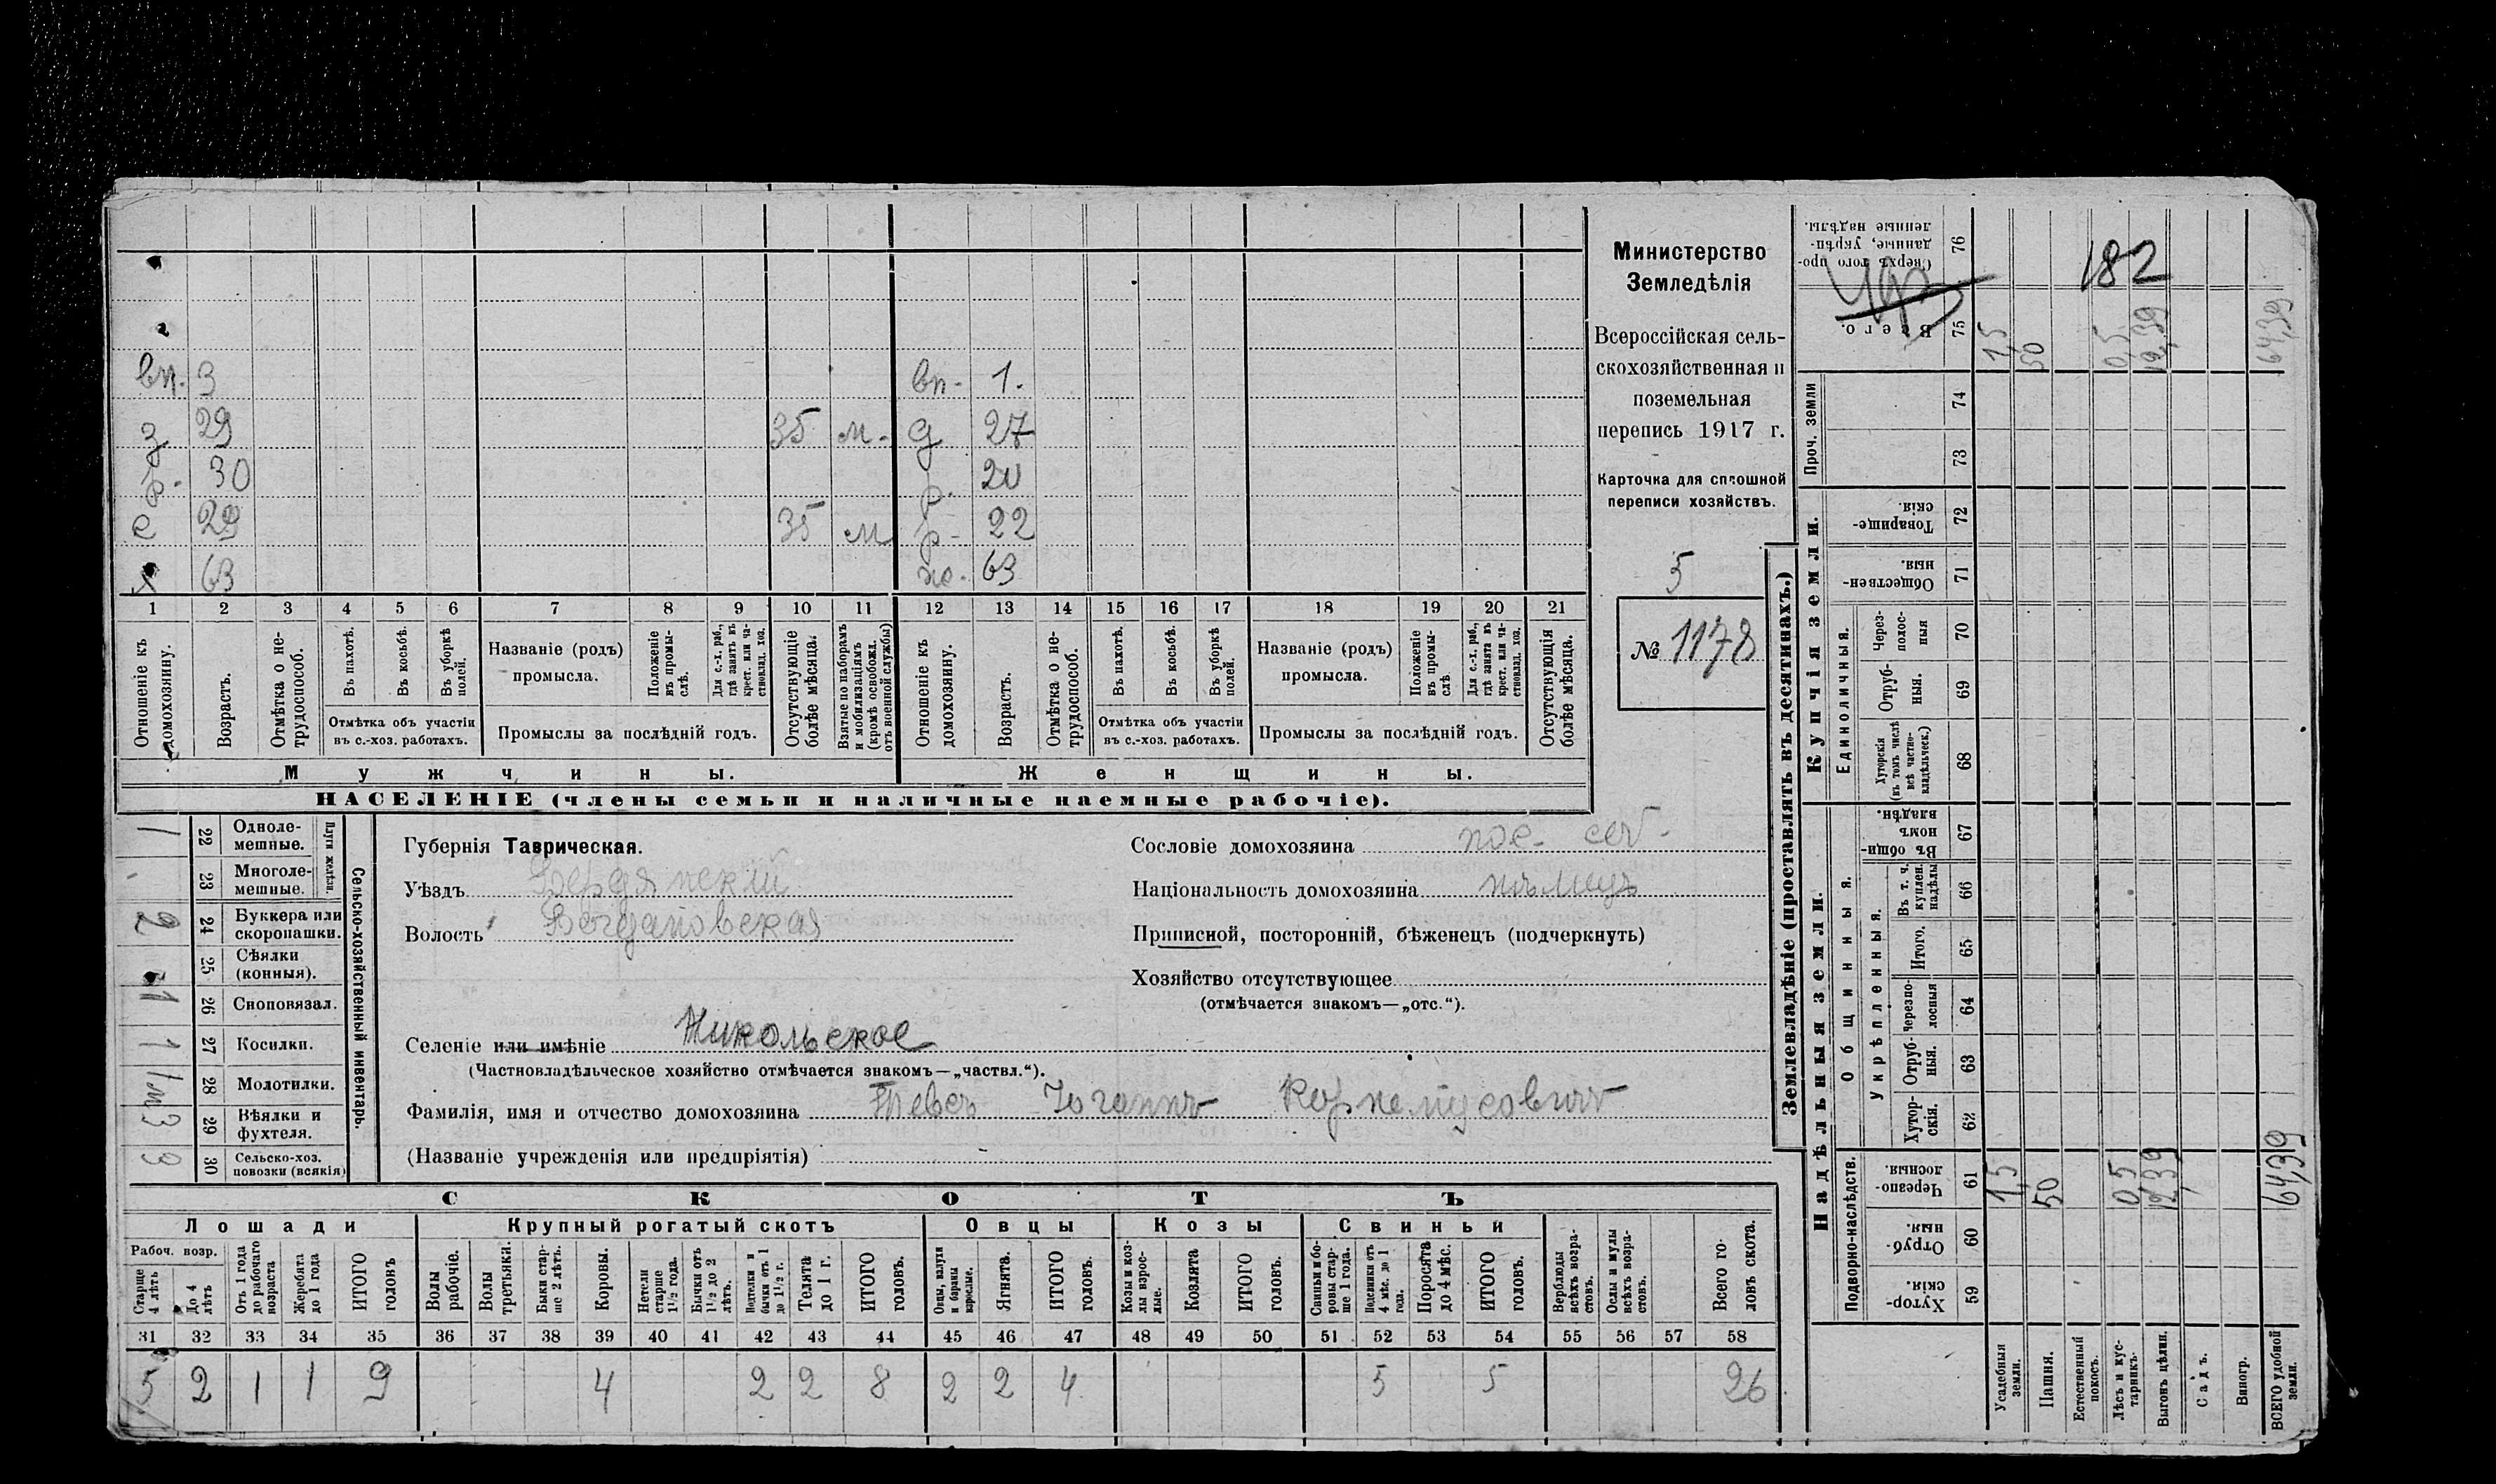 вп. 3 вп- 1.
з 29 35 м. д 27
р. 30 р. 20
с 29 35 м р- 22
х 63 же. 63
1 2 3 4 5 6 7 8 9 10 11 12 13 14 15 16 17 18 19 20 21
Отношеніе къ домохозяину.
Возрастъ.
Отмѣтка о не-трудоспособ.
Въ пахотѣ.
Въ косьбѣ.
Въ уборкѣ полей.
Отмѣтка объ участіи
въ с.-хоз. работахъ.
Названіе (родъ)
промысла.
Положеніе въ промы-слѣ.
Для с.-х. раб., гдѣ занятъ въ крест. или ча-стновлад. хоз.
Промыслы за послѣдній годъ.
Отсутствующіе болѣе мѣсяца.
Взятые по наборамъ и мобилизаціямъ (кромѣ освобожд. отъ военной службы)
Отношеніе къ домохозяину.
Возрастъ.
Отмѣтка о не-трудоспособ.
Въ пахотѣ.
Въ косьбѣ.
Въ уборкѣ полей.
Отмѣтка объ участіи
въ с.-хоз. работахъ.
Названіе (родъ)
промысла.
Положеніе въ промы-слѣ.
Для с.-х. раб., гдѣ занята въ крест. или ча-стновлад. хоз.
Промыслы за послѣдній годъ.
Отсутствующія болѣе мѣсяца.
Мужчины. Женщины.
НАСЕЛЕНІЕ (члены семьи и наличные наемные рабочіе).
Министерство
Земледѣлія
Всероссійская сель-
скохозяйственная и
поземельная
перепись 1917 г.
Карточка для сплошной
переписи хозяйствъ.
5
№ 1178
Сельско-хозяйственный инвентарь.
Плуги желѣзн.
1 22 Одноле-мешные.
23 Многоле-мешные.
2 24 Буккера или скоропашки.
25 Сѣялки (конныя).
1 26 Сноповязал.
1 27 Косилки.
28 Молотилки.
29 Вѣялки и фухтеля.
3 30 Сельско-хоз. повозки (всякія)
Губернія Таврическая.
Уѣздъ Бердянскій
Волость Богдановская
Селеніе или имѣніе Никольское
(Частновладѣльческое хозяйство отмѣчается знакомъ—„частвл.“).
Фамилія, имя и отчество домохозяина Тевсъ Іоганнъ Корнелиусовичъ
(Названіе учрежденія или предпріятія)
Сословіе домохозяина пос. соб.
Національность домохозяина нѣмецъ
Приписной, посторонній, бѣженецъ (подчеркнуть)
Хозяйство отсутствующее
(отмѣчается знакомъ—„отс.“).
СКОТЪ
Лошади Крупный рогатый скотъ Овцы Козы Свиньи
Рабоч. возр.
Старше 4 лѣтъ
До 4 лѣтъ
Отъ 1 года до рабочаго возраста
Жеребята до 1 года
ИТОГО головъ
Волы рабочіе.
Волы третьяки.
Быки стар-ше 2 лѣтъ.
Коровы.
Нетели старше 1½ года.
Бычки отъ 1½ до 2 лѣтъ.
Подтелки и бычки отъ 1 до 1½ г.
Телята до 1 г.
ИТОГО головъ.
Овцы, валухи и бараны взрослые.
Ягнята.
ИТОГО головъ.
Козы и коз-лы взрос-лые.
Козлята
ИТОГО головъ.
Свиньи и бо-ровы стар-ше 1 года.
Подсвинки отъ 4 мѣс. до 1 года.
Поросята до 4 мѣс.
ИТОГО головъ.
Верблюды всѣхъ возра-стовъ.
Ослы и мулы всѣхъ возра-стовъ.
Всего го-ловъ скота.
31 32 33 34 35 36 37 38 39 40 41 42 43 44 45 46 47 48 49 50 51 52 53 54 55 56 57 58
5 2 1 1 9 4 2 2 8 2 2 4 5 5 26
Землевладѣніе (проставлять въ десятинахъ.)
Надѣльныя земли. Купчія земли.
Проч. земли
Подворно-наслѣдств.
Общинныя.
Укрѣпленныя.
Единоличныя.
Сверхъ того про-данные, укрѣп-ленные надѣлы. 76
182
Всего. 75 1,5 50 0,5 12,39 64,39
74
73
Товарище-скія. 72
Обществен-ныя. 71
Через-полос-ныя 70
Отруб-ныя. 69
Хуторскія (въ томъ числѣ всѣ частно-владѣльческ.) 68
Въ общи-номъ владѣн. 67
Въ т. ч. куплен. надѣлы 66
Итого. 65
Черезпо-лосныя 64
Отруб-ныя. 63
Хутор-скія. 62
Черезпо-лосныя. 61 1,5 50 0,5 12,39 64,39
Отруб-ныя. 60
Хутор-скія. 59
Усадебныя земли.
Пашня.
Естественный покосъ.
Лѣсъ и кус-тарникъ.
Выгонъ цѣлин.
Садъ.
Виногр.
ВСЕГО удобной земли.